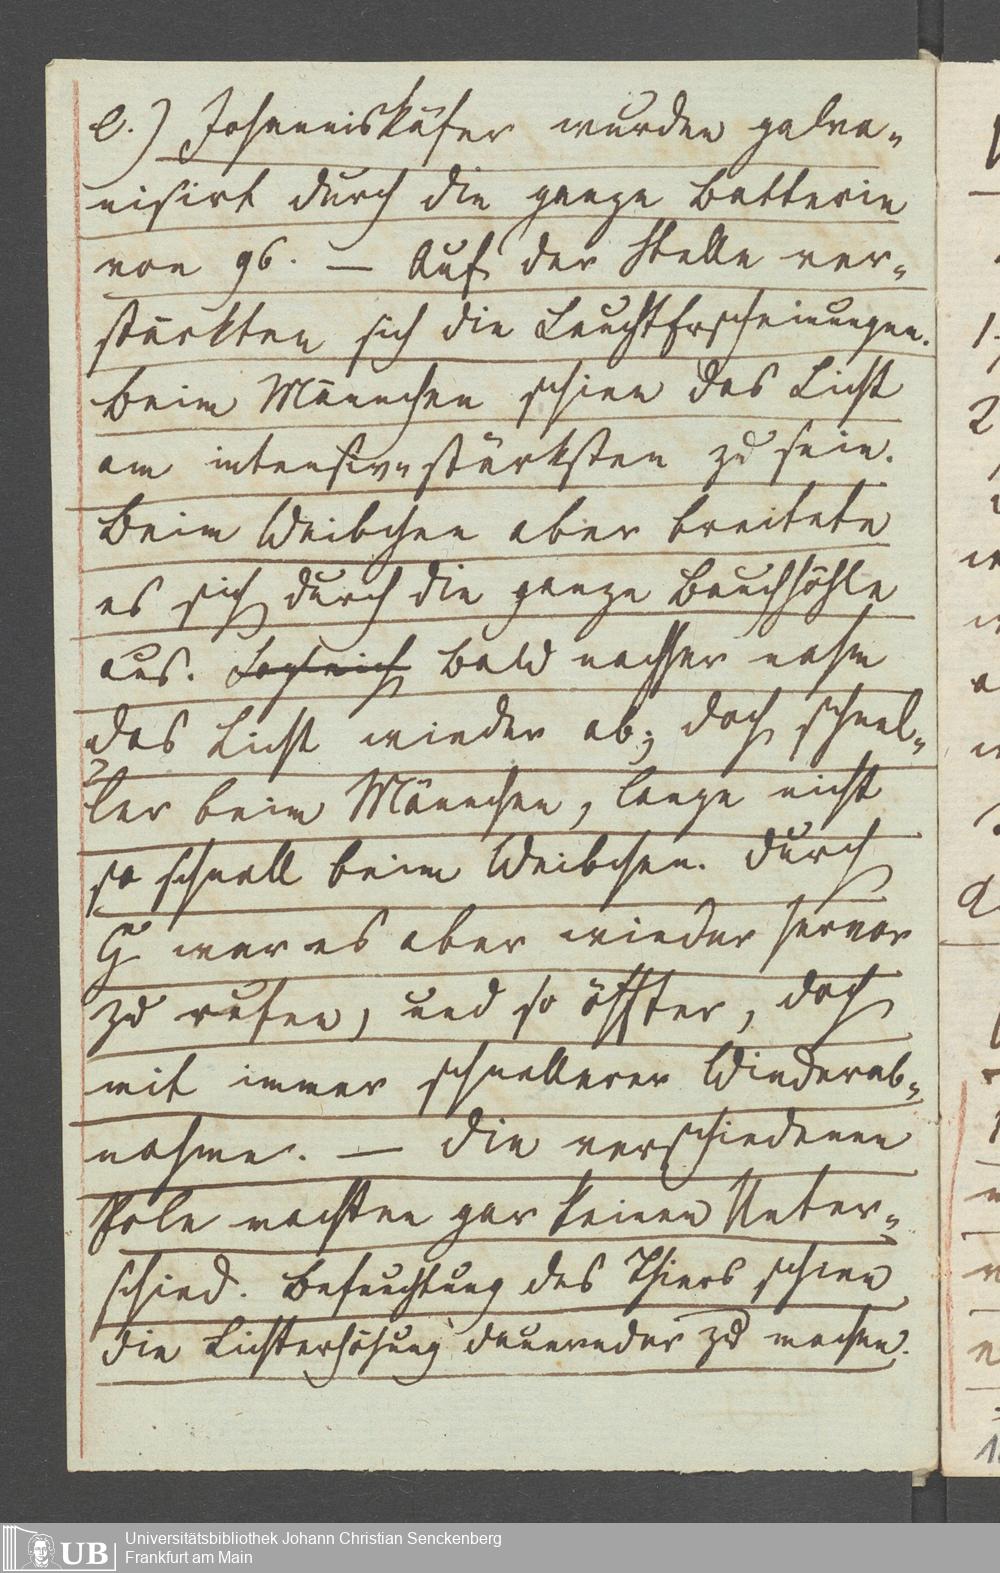 e.) Johanniskäfer wurden galva-
nisirt durch die ganze Batterie
von 96. — Auf der Stelle ver-
stärkten sich die LeuchtErscheinungen.
Beim Männchen schien das Licht
am intensiv-stärksten zu sein.
Beim Weibchen aber breitete
es sich durch die ganze Bauchhöhle
aus. Sogleich Bald nachher nahm
das Licht wieder ab; doch schnel-
ler beim Männchen, lange nicht
so schnell beim Weibchen. Durch
G war es aber wieder hervor
zu rufen, und so öffter, doch
mit immer schnellerer Wiederab-
nahme. — Die verschiedenen
Pole machten gar keinen Unter-
schied. Befeuchtung des Thiers schien
die Lichterhöhung dauernder zu machen.
Universitätsbibliothek Johann Christian Senckenberg
Frankfurt am Main
UB